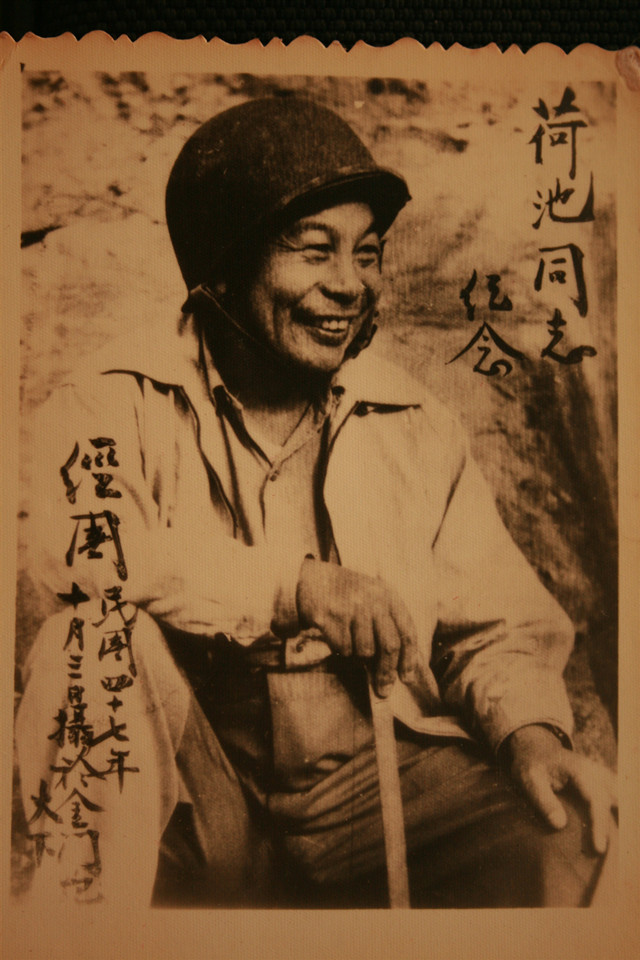 荷池同志
紀念
經國
民國四十七年
十月三日攝於金門
火下